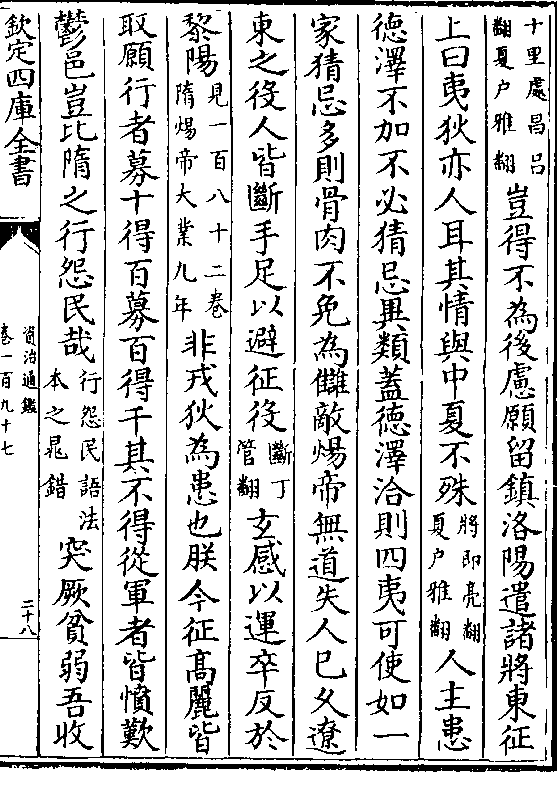 十里處昌呂翻夏户雅翻豈得不為後慮願留鎮洛陽遣諸將東征
上曰夷狄亦人耳其情與中夏不殊將即亮翻夏户雅翻人主患
德澤不加不必猜忌異類蓋德澤洽則四夷可使如一
家猜忌多則骨肉不免為讎敵煬帝無道失人已久遼
東之役人皆斷手足以避征役斷丁管翻玄感以運卒反於
黎陽見一百八十二卷隋煬帝大業九年非戎狄為患也朕今征高麗皆
取願行者募十得百募百得千其不得從軍者皆憤歎
鬱邑豈比隋之行怨民哉行怨民語法本之晁錯突厥貧弱吾收
欽定四庫全書
資治通鑑
卷一百九十七
二十八